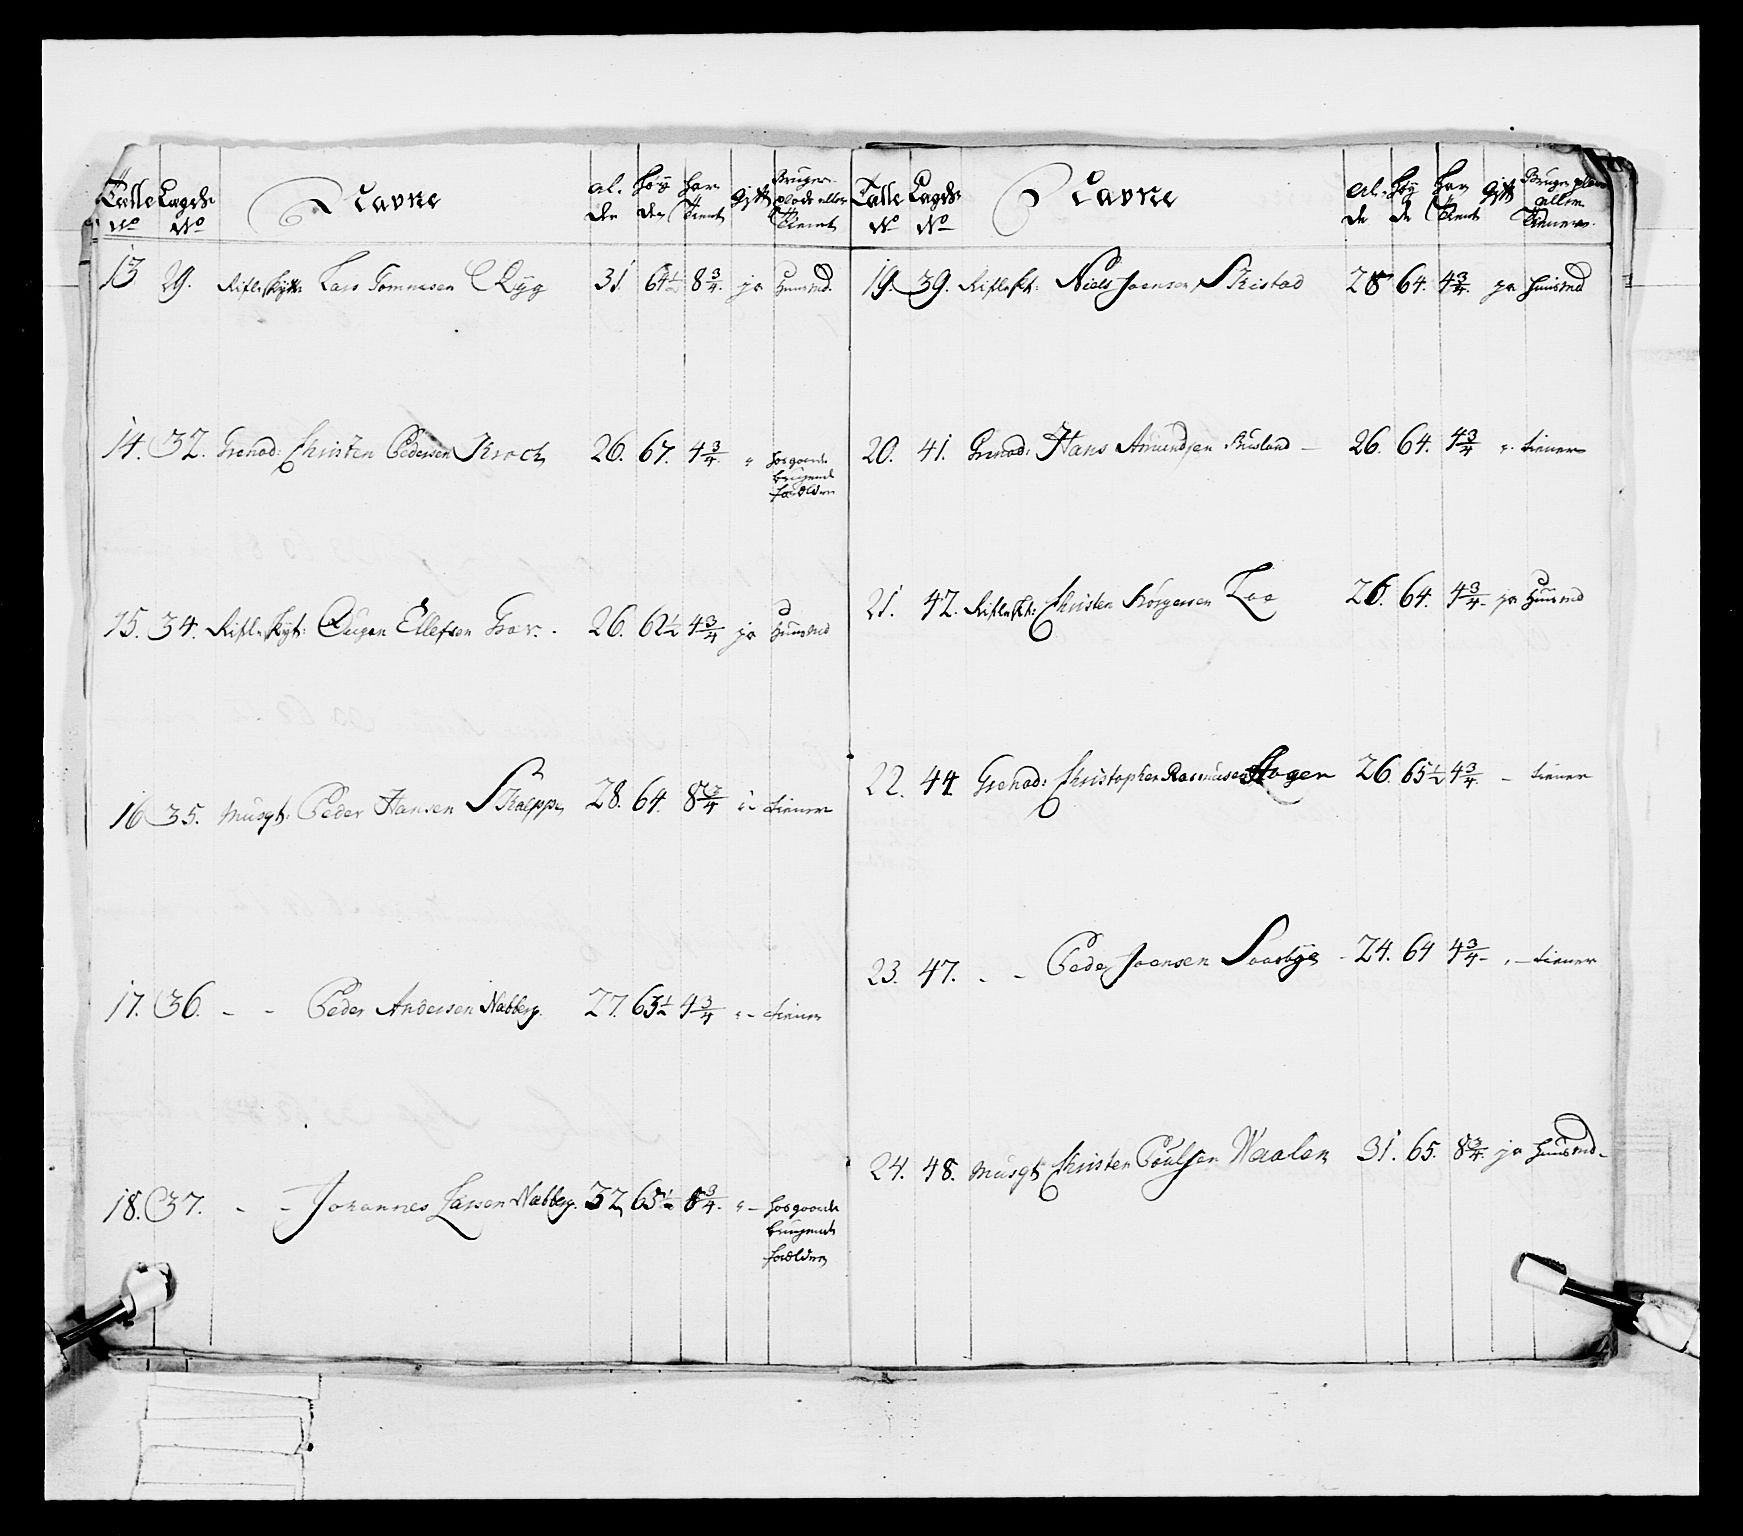 Talle No Lagds No Navne Al-der Høy-den Har tient Gift Bruger plads eller tient
13 29. Riflskytt: Lars Tommesen Ryg 31 64½ 8¾. ja huusmd.
14. 32. Grenad: Christen Pedersen Kroch 26. 67. 4¾. " hos gaard
brugende
forældre
15. 34. Riflskyt: Ellefsen 26. 62½ 4¾ ja huusmd
16 35. Musqt: Peder Hansen Skieppe 28. 64. 8¾ " - tiener
17. 36. - - Peder Andersen Nabberg. 27. 63½ 4¾ " - tiener
18. 37. - - Johannes Larsen Nabberg. 32 65½ 8¾. " - hos gaard
brugende
forældre
Talle No Lagds No Navne Al-de Høy-de Har tient Gift Bruger plads eller tiener
19. 39. Riflskt: Niels Joensen Skistad 28 64. 4¾. ja huusmd
20. 41. Grenad: Hans Amundsen - 26. 64. 4¾ ". tiener
21. 42. Riflskt: Christen Jørgensen Loe 26. 64. 4¾. ja huusmd
22. 44 Grenad: Christopher Rasmusen Hagen 26. 65½ 4¾. - tiener
23. 47. - - Peder Joensen - 24. 64 4¾ - " - tiener
24. 48. Musqt Christen Poulsen Waalen 31. 65. 8¾. ja huusmd.